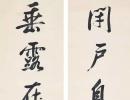 閑戶自
垂露在